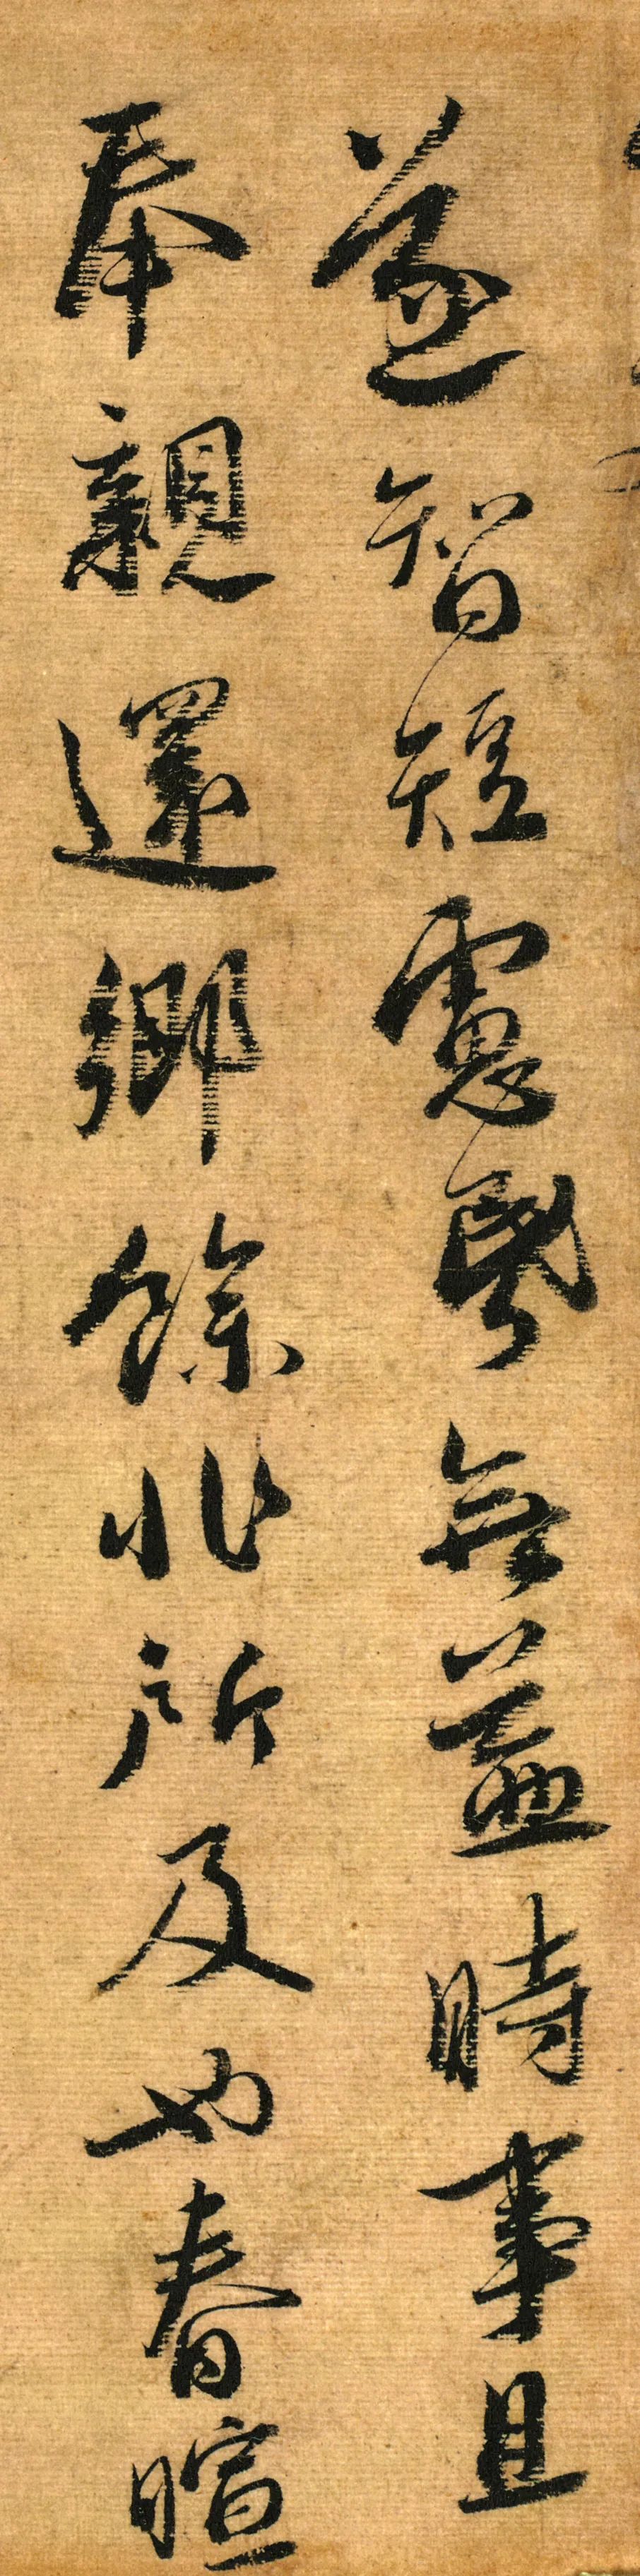 遂智短慮昬無益時事且
奉親還鄉餘非所及也春暄